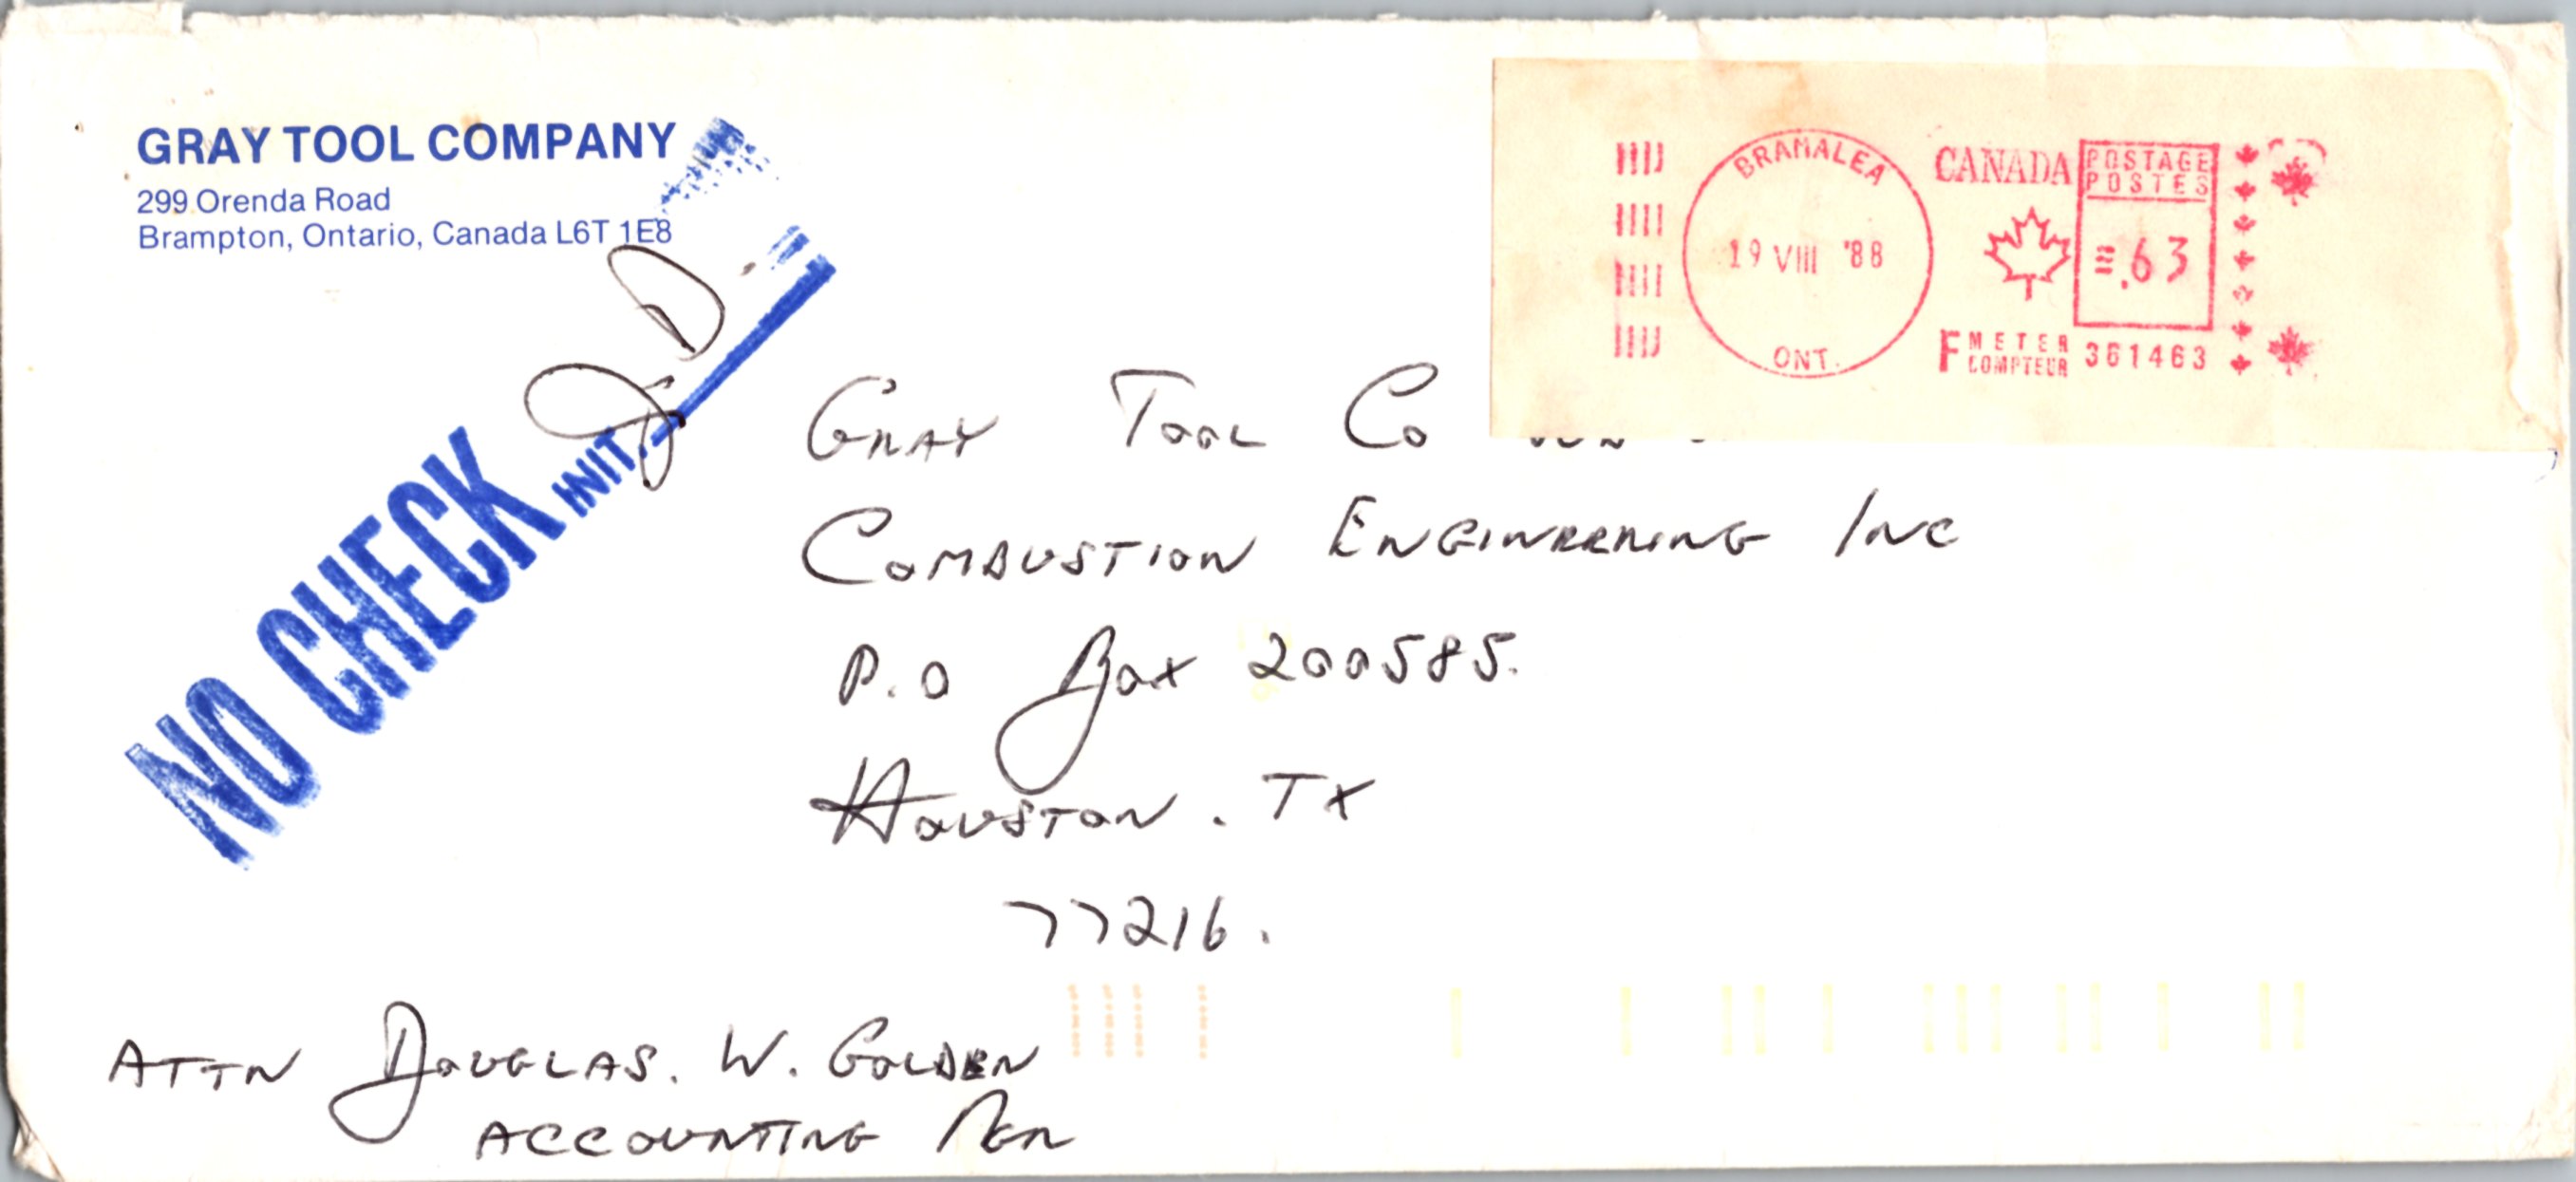 GRAY TOOL COMPANY
299 Orenda Road
Brampton, Ontario, Canada L6T 1E8
BRAMALEA
19 VIII '88
ONT.
CANADA
POSTAGE
POSTES
.63
F METER
COMPTEUR
361463
NO CHECK INIT.
GRAY TOOL CO
COMBUSTION ENGINEERING INC
P.O BOX 200585.
HOUSTON. TX
77216.
ATTN DOUGLAS. W. GOLDEN
ACCOUNTING